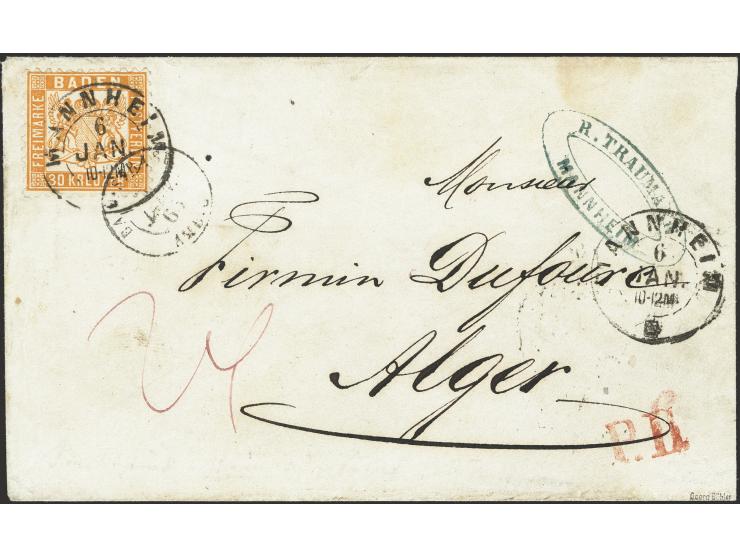 BADEN
FREIMARKE
30 KREUZER
MANNHEIM
6
JAN.
10-12M
R. TRAUMA
MANNHEIM
Monsieur
Firmin Dufourc
Alger
MANNHEIM
6
JAN.
10-12M
P.D.
Georg Bühler